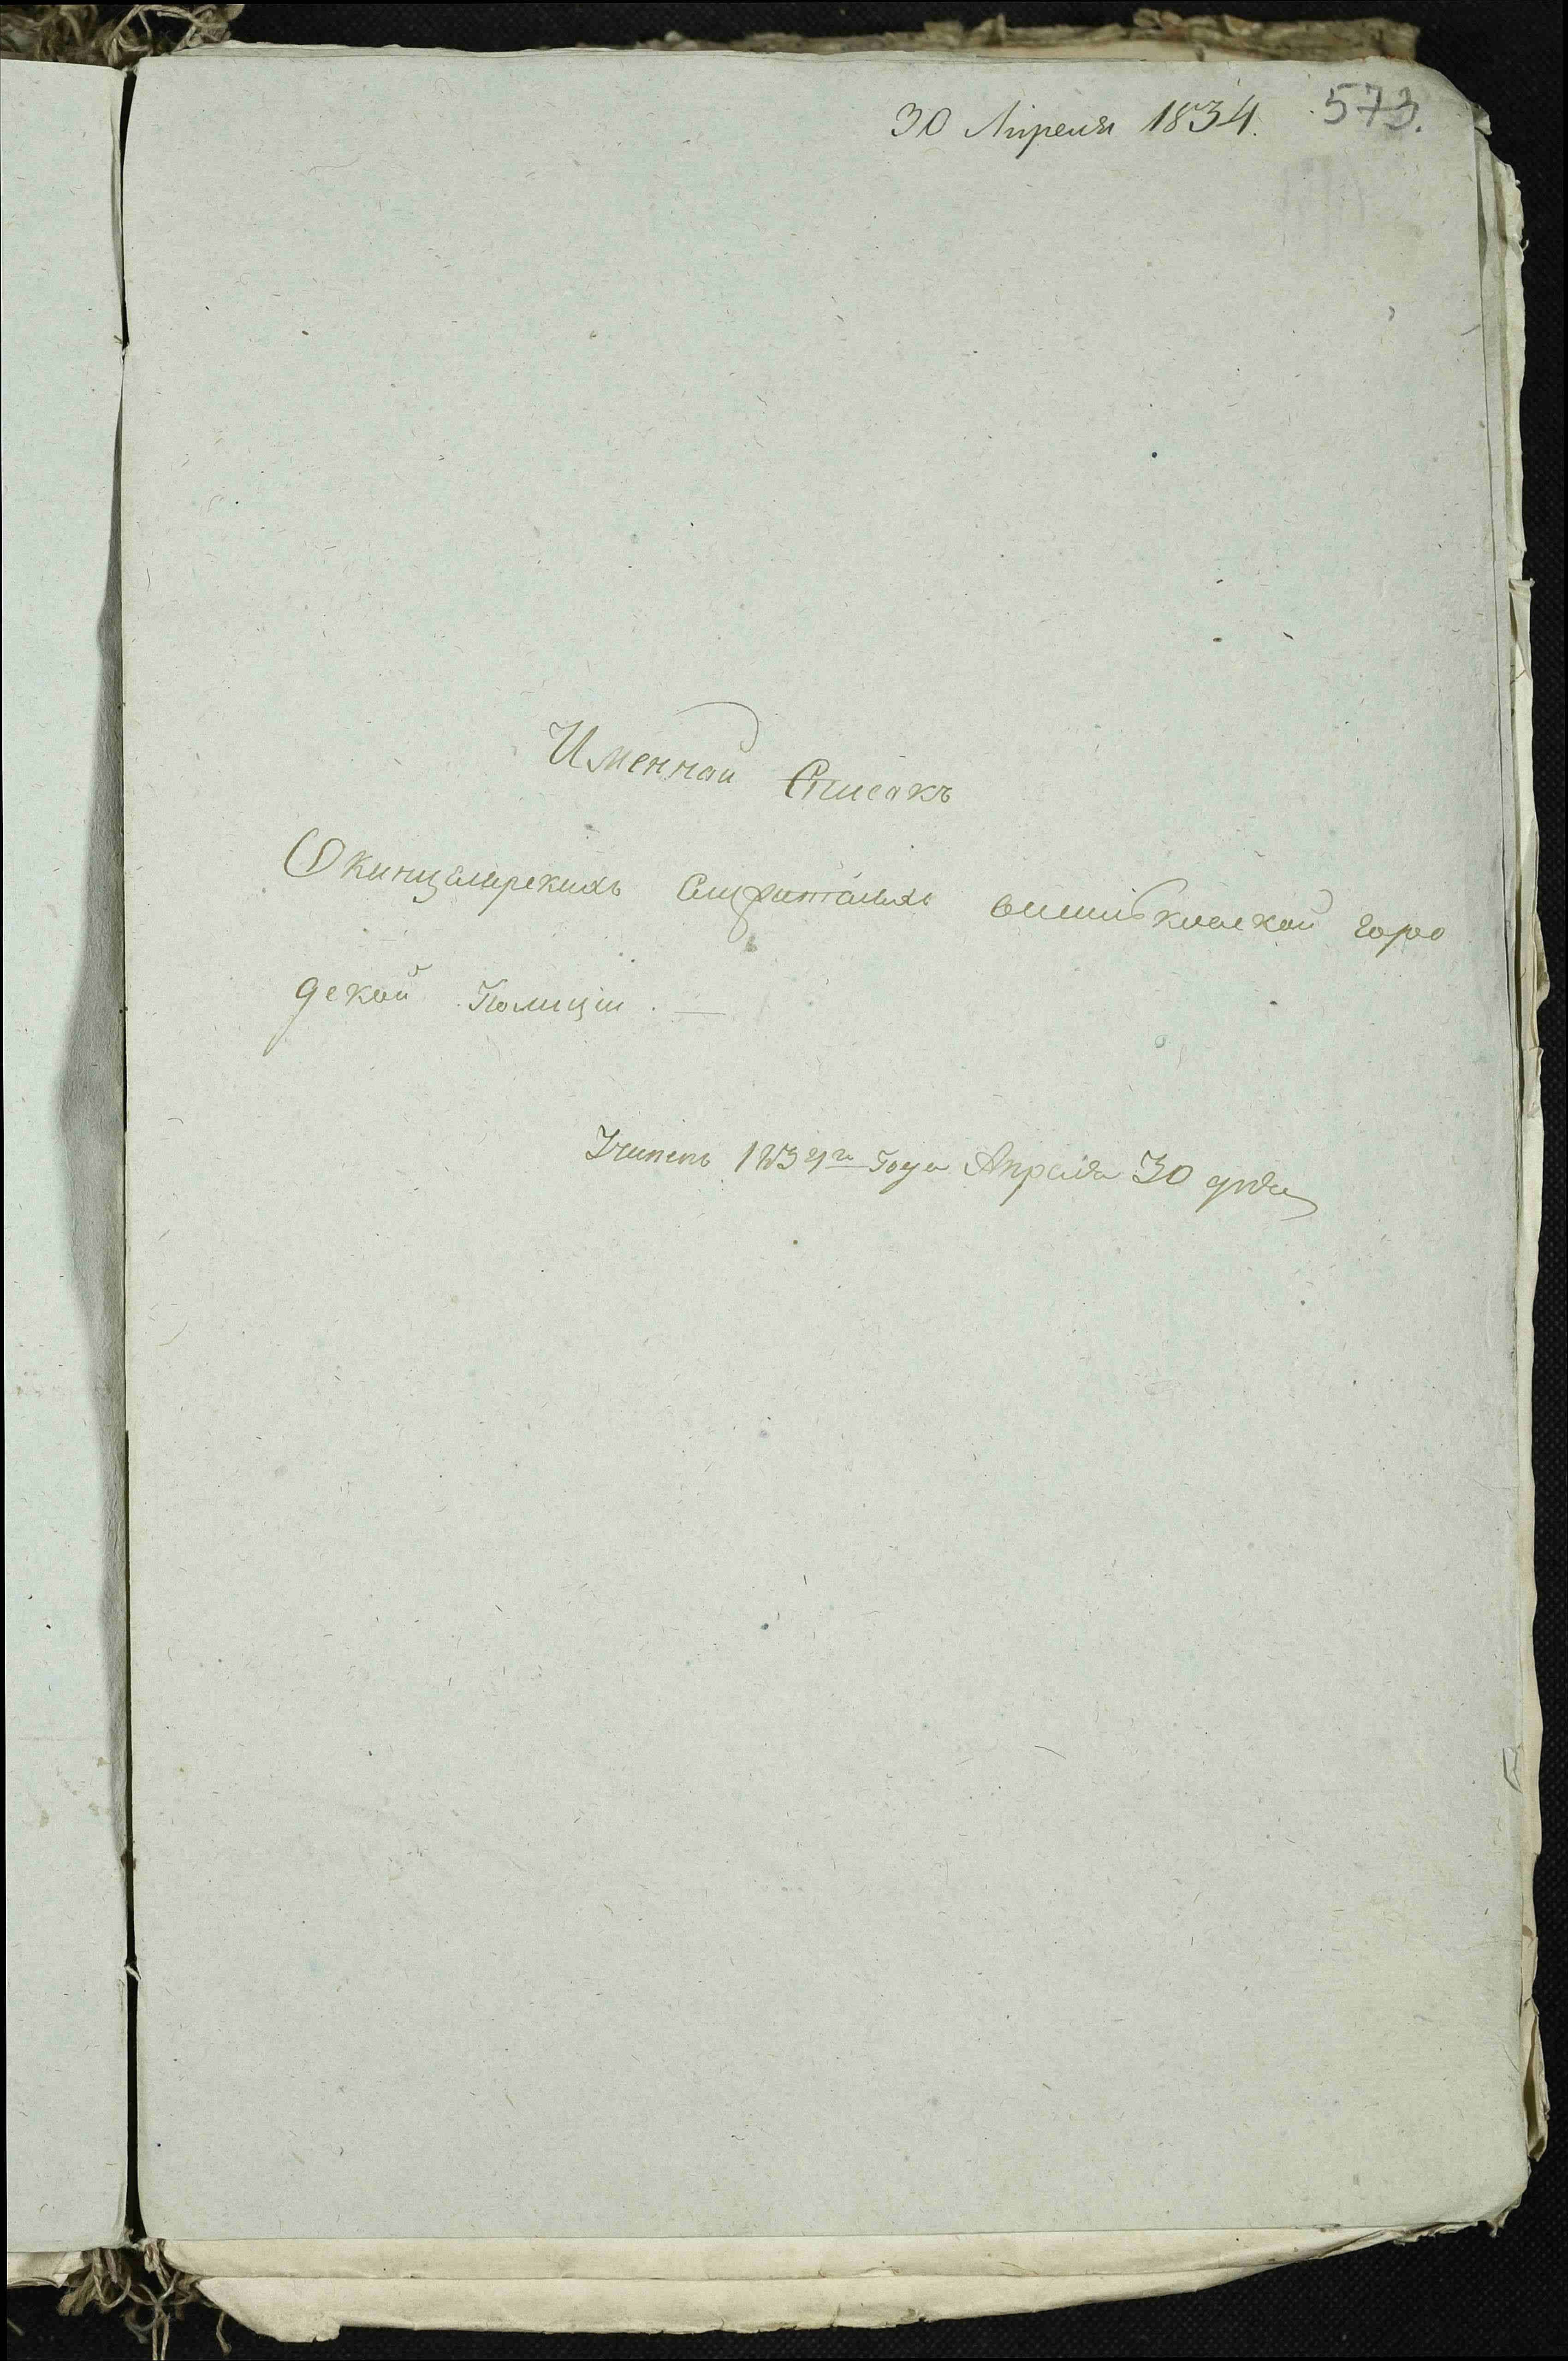 30 Апреля 1834. 573.
Именной Списокъ
О канцелярскихъ Служителяхъ горо
дской Полиціи. —
Учинень 1834го Года Апреля 30 дня